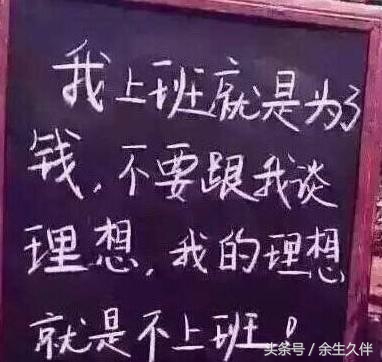 我上班就是为了
钱，不要跟我谈
理想，我的理想
就是不上班！
头条号／余生久伴